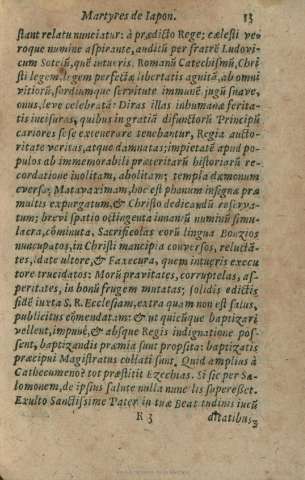 Martyres de Iapon. 13
stant relatu nunciatur: à prædicto Rege; cælesti ve-
roque numine aspirante, auditū per fratrē Ludovi-
cum Soteliū, quē intueris. Romanū Catechismū, Chri
sti legem, legem perfectæ libertatis agnitā, ab omni
vitiorū, sordiumque servitute immunē jugū suave,
onus, leve celebratā: Diras illas inhumanæ ferita-
tis incisuras, quibus in gratiā difunctorū Principū
cariores sese extenerare tenebantur, Regia aucto-
ritate veritas, atque damnatas; impietatē apud po-
pulos ab immemorabili præteritarū historiarū re-
cordatione inolitam, abolitam; templa dæmonum
eversa; Matavaximam, hoc est phanum insigne præ
multis expurgatum, & Christo dedicandū reserva-
tum; brevi spatio octingenta inaniū numinū simu-
lacra, cōminuta, Sacrificolas eorū lingua Bonzios
nuncupatos, in Christi mancipia conversos, reluctā-
tes, Idate ultore, & Faxecura, quem intueris execu
tore trucidatos: Morū pravitates, corruptelas, as-
peritates, in bonū frugem mutatas; solidis edictis
fidē juxta S. R. Ecclesiam, extra quam non est salus,
publicitus cōmendatam: & ut quicūque baptizari
vellent, impunè, & absque Regis indignatione pos-
sent, baptizandis præmia sunt proposita: baptizatis
præcipui Magistratus collati sunt. Quid amplius à
Cathecumeno? tot præstitit Ezechias. Si sic per Sa-
lomonem, de ipsius salute nulla nunc lis superesset.
Exulto Sanctissime Pater in tuæ Beatitudinis jucū
R 3 ditatibus;